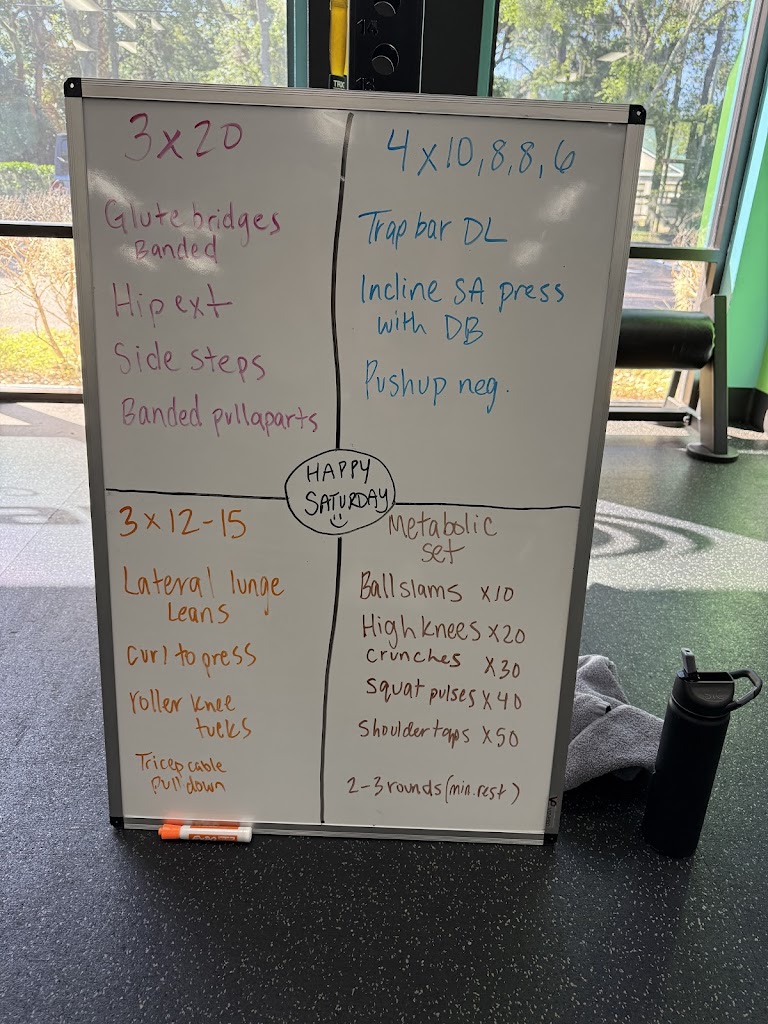 3 x 20
Glute bridges
Banded
Hip ext
Side steps
Banded pullaparts
4 x 10, 8, 8, 6
Trap bar DL
Incline SA press
with DB
Pushup neg.
HAPPY
SATURDAY
3 x 12-15
Lateral lunge
Leans
Curl to press
roller knee
tucks
Tricep cable
pull down
Metabolic
set
Ball slams x10
High knees x20
crunches x30
squat pulses x40
shoulder taps x50
2-3 rounds (min. rest)
TRX
14